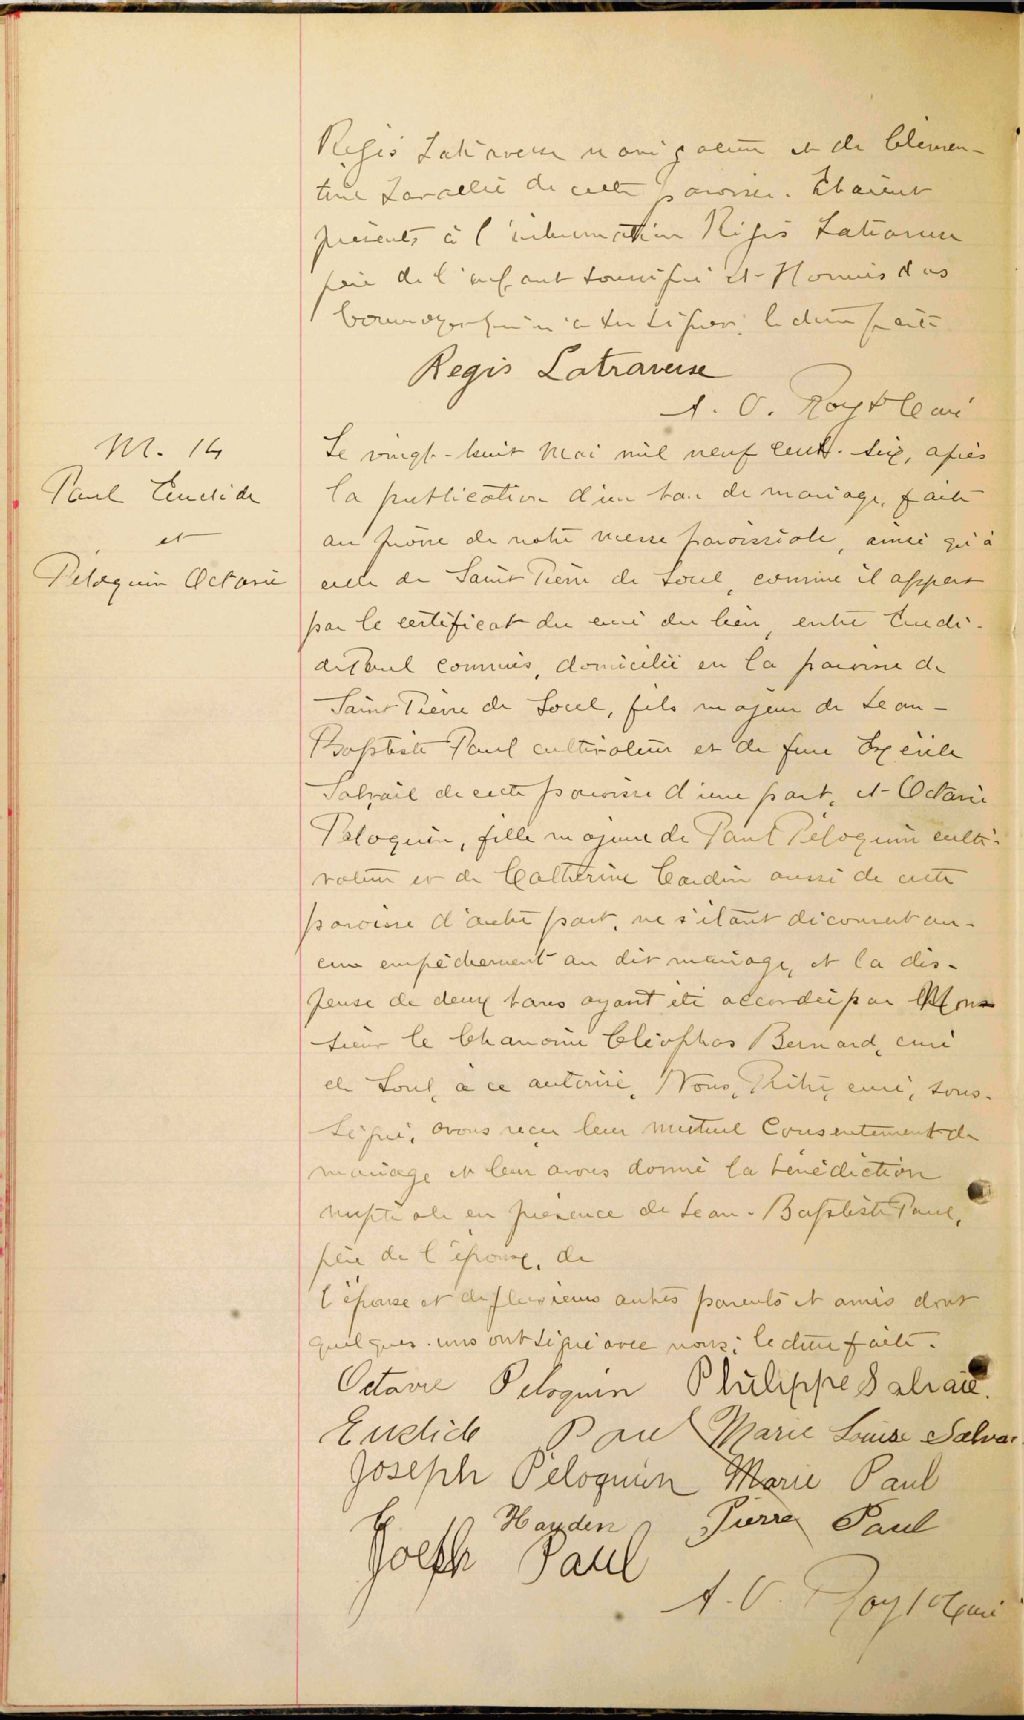 Régis Latraverse navigateur et de Clémen-
tine Lavallée de cette paroisse. Etaient
présents à l'inhumation Régis Latraverse
père de l'enfant soussigné et
Cournoyer qui n'a su signer. lecture faite
Regis Latraverse
A. O. Roy Ptre Curé
M. 14
Paul Euclide
et
Péloquin Octavie
Le vingt-huit Mai mil neuf cent-six, après
la publication d'un ban de mariage, faite
au prône de notre messe paroissiale, ainsi qu'à
celle de Saint Pierre de Sorel, comme il appert
par le certificat du curé du lieu, entre Eucli-
de Paul commis, domicilié en la paroisse de
Saint Pierre de Sorel, fils majeur de Jean-
Baptiste Paul cultivateur et de feue
Salvail de cette paroisse d'une part, et Octavie
Péloquin, fille majeure de Paul Péloquin culti-
vateur et de Catherine Cardin aussi de cette
paroisse d'autre part, ne s'étant découvert au-
cun empêchement au dit mariage, et la dis-
pense de deux bans ayant été accordée par Mon
sieur le Chanoine Cléophas Bernard, curé
de Sorel, à ce autorisé, Nous, Prêtre, curé, sous-
signé, avons reçu leur mutuel Consentement de
mariage et leur avons donné la bénédiction
nuptiale en présence de Jean-Baptiste Paul,
père de l'époux, de
l'épouse et de plusieurs autres parents et amis dont
quelques-uns ont signé avec nous; lecture faite.
Octavie Peloquin Philippe Salvail.
Euclide Paul Marie Louise Salvai
Joseph Péloquin Marie Paul
Pierre Paul
Joseph Paul
A. O. Roy Ptre Curé